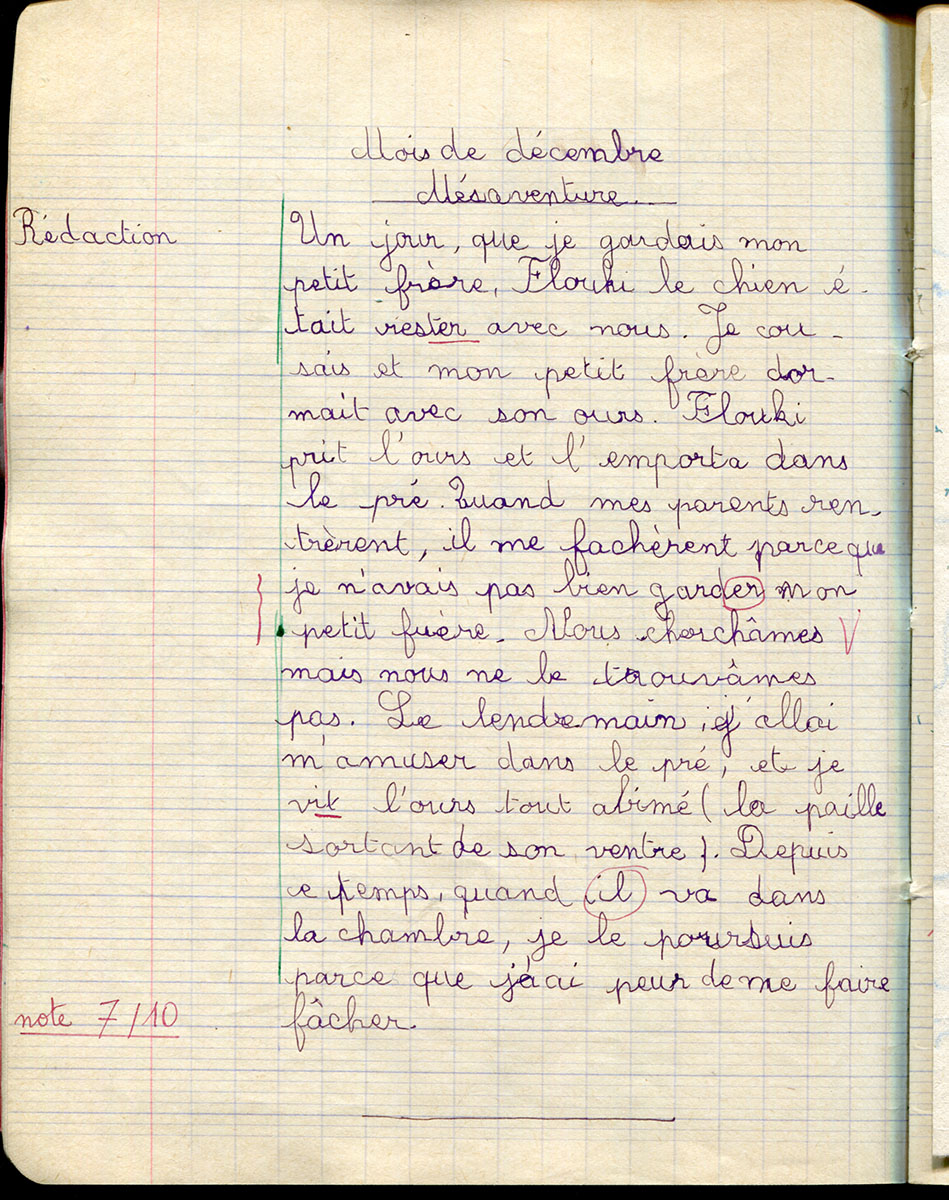 Mois de décembre
Mésaventure
Rédaction
Un jour, que je gardais mon
petit frère, Flouki le chien é-
tait rester avec nous. Je cou-
sais et mon petit frère dor-
mait avec son ours. Flouki
prit l'ours et l'emporta dans
le pré. Quand mes parents ren-
trèrent, il me fachèrent parce que
je n'avais pas bien garder mon
petit frère. Nous cherchâmes V
mais nous ne le trouvâmes
pas. Le lendemain, j'allai
m'amuser dans le pré, et je
vit l'ours tout abimé (la paille
sortant de son ventre). Depuis
ce temps, quand il va dans
la chambre, je le poursuis
parce que j'ai peur de me faire
note 7/10 fâcher.